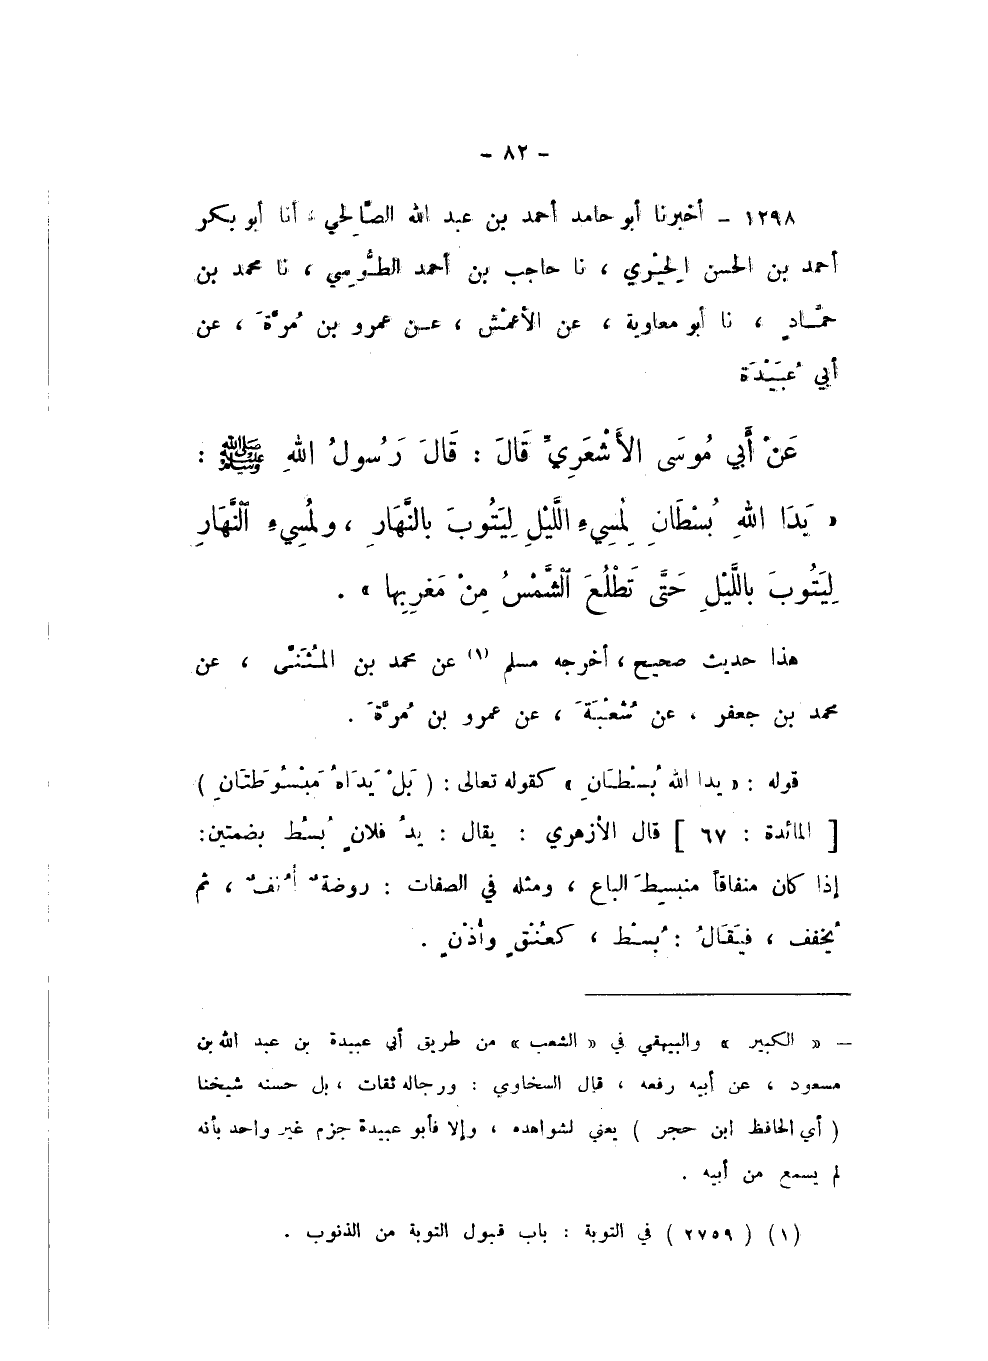 - ٨٢ -
١٢٩٨ - أخبرنا أبو حامد أحمد بن عبد الله الصَّالحي ، أنا أبو بكر
أحمد بن الحسن الحِيْري ، نا حاجب بن أحمد الطُّوسي ، نا محمد بن
حمَّادٍ ، نا أبو معاوية ، عن الأعْمش ، عن عمرو بن مُرَّةَ ، عن
أبي عُبَيْدَة
عَنْ أَبي مُوسَى الأَشْعَرِيِّ قَالَ : قَالَ رَسُولُ اللهِ ﷺ :
« يَدَا اللهِ بُسْطَانِ لِمُسِيءِ اللَّيْلِ لِيَتُوبَ بالنَّهَارِ ، ولمُسِيءِ النَّهَارِ
لِيَتُوبَ باللَّيْلِ حَتَّى تَطْلُعَ الشَّمْسُ مِنْ مَغرِبِها » .
هذا حديث صحيح ، أخرجه مسلم (١) عن محمد بن المُثَنَّى ، عن
محمد بن جعفر ، عن شُعْبَةَ ، عن عمرو بن مُرَّةَ .
قوله : « يدا الله بُسْطَانِ » كقوله تعالى : ( بَلْ يَدَاهُ مَبْسُوطَتَانِ )
[ المائدة : ٦٧ ] قال الأزهري : يقال : يدُ فلانٍ بُسُط بضمتين :
إذا كان منفاقاً منبسِطَ الباع ، ومثله في الصفات : روضةٌ أُنفٌ ، ثم
يُخفف ، فيَقَالُ : بُسْط ، كعُنْقٍ وأُذْنٍ .
— « الكبير » والبيهقي في « الشعب » من طريق أبي عبيدة بن عبد الله بن
مسعود ، عن أبيه رفعه ، قال السخاوي : ورجاله ثقات ، بل حسنه شيخنا
( أي الحافظ ابن حجر ) يعني لشواهده ، وإلا فأبو عبيدة جزم غير واحد بأنه
لم يسمع من أبيه .
(١) ( ٢٧٥٩ ) في التوبة : باب قبول التوبة من الذنوب .